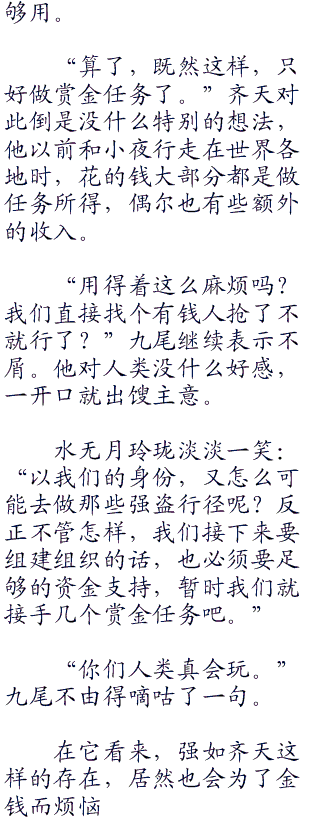 够用。
“算了，既然这样，只
好做赏金任务了。”齐天对
此倒是没什么特别的想法，
他以前和小夜行走在世界各
地时，花的钱大部分都是做
任务所得，偶尔也有些额外
的收入。
“用得着这么麻烦吗？
我们直接找个有钱人抢了不
就行了？”九尾继续表示不
屑。他对人类没什么好感，
一开口就出馊主意。
水无月玲珑淡淡一笑：
“以我们的身份，又怎么可
能去做那些强盗行径呢？反
正不管怎样，我们接下来要
组建组织的话，也必须要足
够的资金支持，暂时我们就
接手几个赏金任务吧。”
“你们人类真会玩。”
九尾不由得嘀咕了一句。
在它看来，强如齐天这
样的存在，居然也会为了金
钱而烦恼